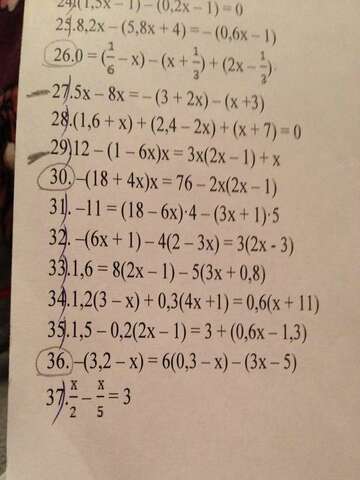 24)(1,5x – 1) – (0,2x – 1) = 0
25.8,2x – (5,8x + 4) = – (0,6x – 1)
26.0 = (1/6 – x) – (x + 1/3) + (2x – 1/3).
27.5x – 8x = – (3 + 2x) – (x +3)
28.(1,6 + x) + (2,4 – 2x) + (x + 7) = 0
29)12 – (1 – 6x)x = 3x(2x – 1) + x
30. –(18 + 4x)x = 76 – 2x(2x – 1)
31. –11 = (18 – 6x)·4 – (3x + 1)·5
32. –(6x + 1) – 4(2 – 3x) = 3(2x - 3)
33.1,6 = 8(2x – 1) – 5(3x + 0,8)
34.1,2(3 – x) + 0,3(4x +1) = 0,6(x + 11)
35.1,5 – 0,2(2x – 1) = 3 + (0,6x – 1,3)
36. –(3,2 – x) = 6(0,3 – x) – (3x – 5)
37.x/2 – x/5 = 3